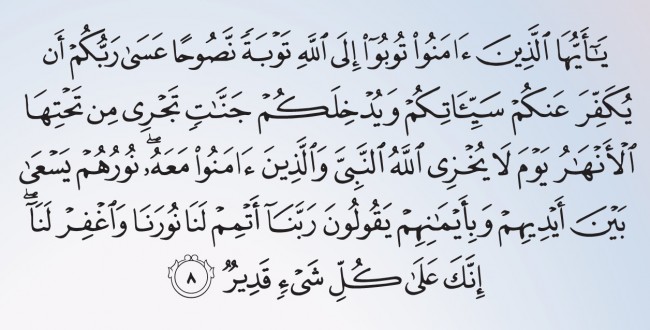 يَـٰٓأَيُّهَا ٱلَّذِينَ ءَامَنُوا۟ تُوبُوٓا۟ إِلَى ٱللَّهِ تَوْبَةً نَّصُوحًا عَسَىٰ رَبُّكُمْ أَن
يُكَفِّرَ عَنكُمْ سَيِّـَٔاتِكُمْ وَيُدْخِلَكُمْ جَنَّـٰتٍ تَجْرِى مِن تَحْتِهَا
ٱلْأَنْهَـٰرُ يَوْمَ لَا يُخْزِى ٱللَّهُ ٱلنَّبِىَّ وَٱلَّذِينَ ءَامَنُوا۟ مَعَهُۥۖ نُورُهُمْ يَسْعَىٰ
بَيْنَ أَيْدِيهِمْ وَبِأَيْمَـٰنِهِمْ يَقُولُونَ رَبَّنَآ أَتْمِمْ لَنَا نُورَنَا وَٱغْفِرْ لَنَآۖ
إِنَّكَ عَلَىٰ كُلِّ شَىْءٍ قَدِيرٌ ٨